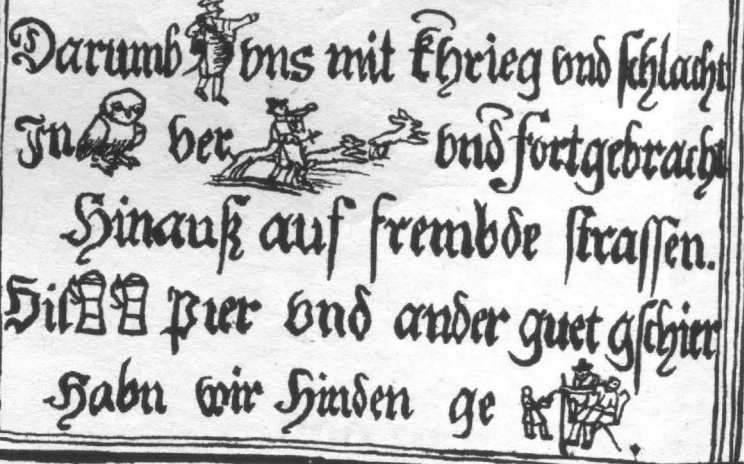 Darumb vns mit khrieg vnd schlacht
In ver vnd fortgebracht
Hinauß auf frembde strassen.
Pier vnd ander guet gschier
Habn wir Hinden ge